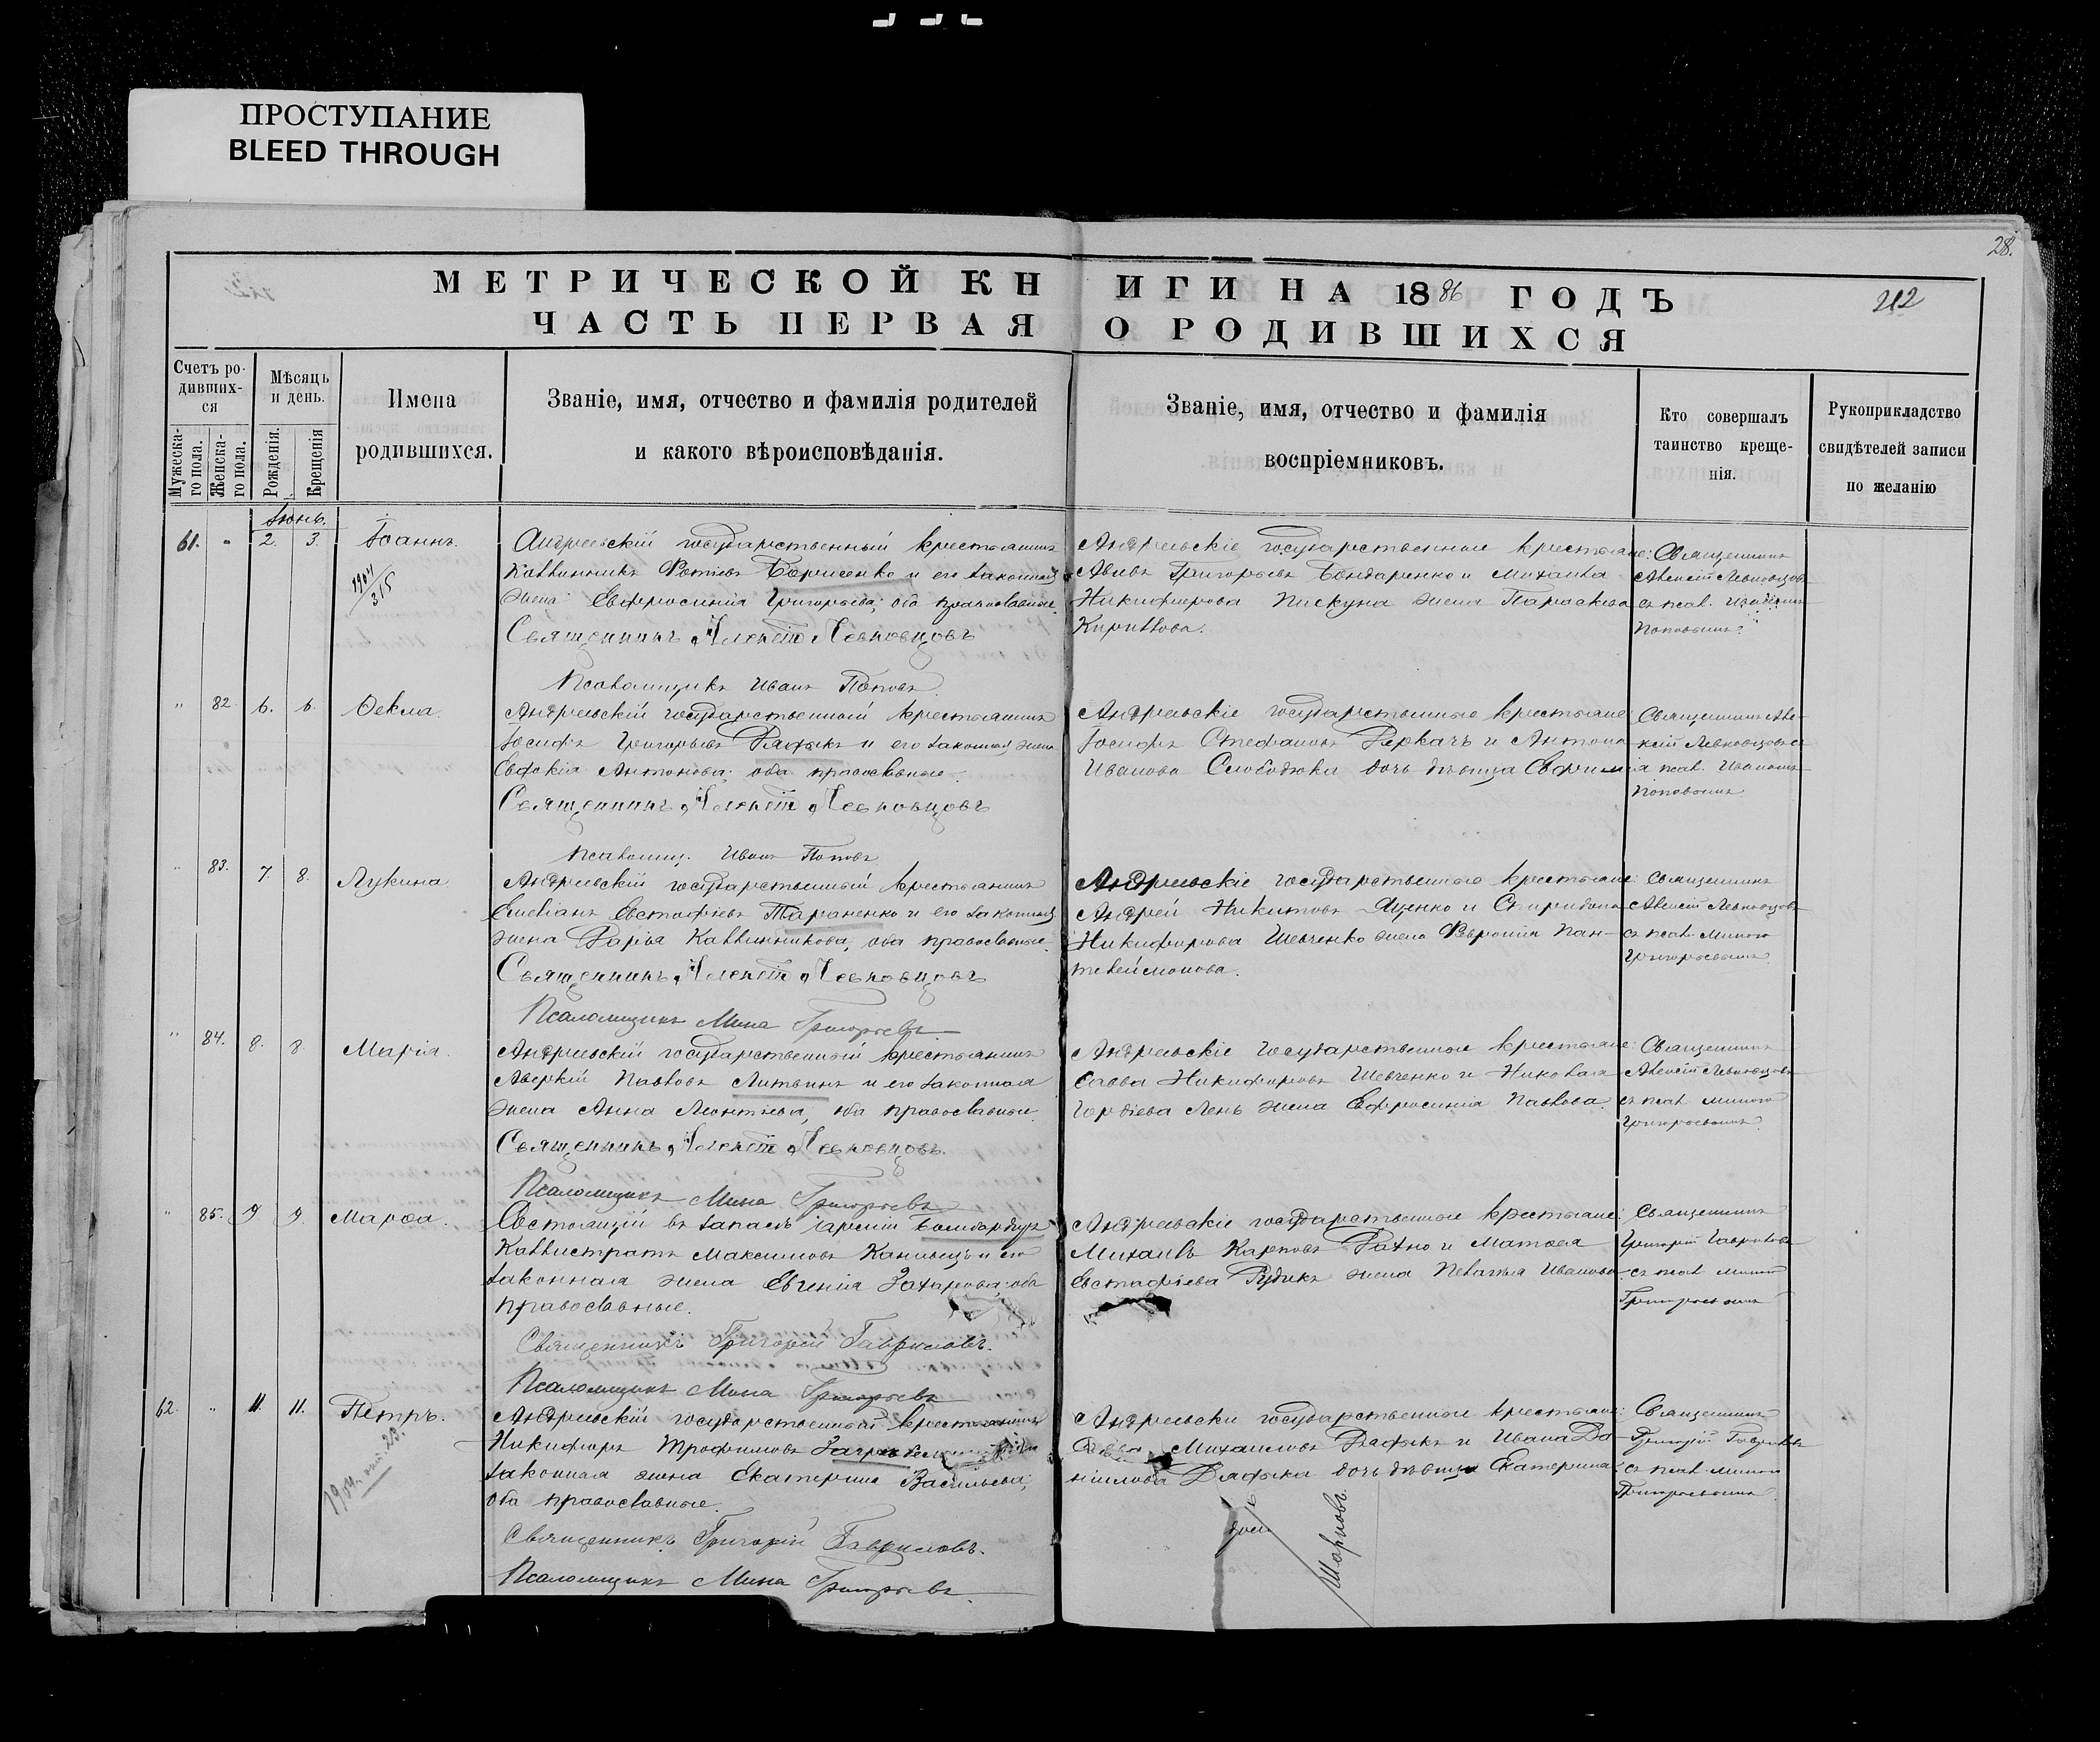 ПРОСТУПАНИЕ
BLEED THROUGH
28.
МЕТРИЧЕСКОЙ КНИГИ НА 1886 ГОДЪ
212
ЧАСТЬ ПЕРВАЯ О РОДИВШИХСЯ
Счетъ ро-
дивших-
ся
Мужеска-
го пола.
Женска-
го пола.
Мѣсяцъ
и день.
Рожденія.
Крещенія
Имена
родившихся.
Званіе, имя, отчество и фамилія родителей
и какого вѣроисповѣданія.
Званіе, имя, отчество и фамилія
воспріемниковъ.
Кто совершалъ
таинство креще-
нія.
Рукоприкладство
свидѣтелей записи
по желанію
Іюнь.
61. " 2. 3. Іоаннъ.
1904
315
Андреевскій государственный крестьянинъ
Каллинникъ Фотіевъ Борисенко и его законная
жена Евфросинія Григорьева; оба православные.
Священникъ Алексій Левковцовъ
Псаломщикъ Иванъ Поповъ
Андреевскіе государственные крестьяне:
Григорьевъ Бондаренко и Михаила
Никифорова Пискуна жена Параскева
Кириллова.
Священникъ
Алексій Левковцовъ
съ псал. Иваномъ
Поповымъ.
" 82. 6. 6. Ѳекла.
Андреевскій государственный крестьянинъ
Іосифъ Григорьевъ и его законная жена
Евдокія Антонова; оба православные.
Священникъ Алексій Левковцовъ
Псаломщ. Иванъ Поповъ
Андреевскіе государственные крестьяне
Іосифъ Стефановъ Деркачъ и Антона
Иванова Слободюка дочь дѣвица Евфимія
Священникъ Але-
ксій Левковцовъ съ
псал. Иваномъ
Поповымъ
" 83. 7. 8. Лукина
Андреевскій государственный крестьянинъ
Емеліанъ Евстафіевъ Тараненко и его законная
жена Дарья Каллинникова, оба православные.
Священникъ Алексій Левковцовъ
Псаломщикъ Мина Григорьевъ
Андреевскіе государственные крестьяне:
Андрей Никитовъ Яценко и Спиридона
Никифорова Шевченко жена Феврония Пан-
телеймонова.
Священникъ
Алексій Левковцовъ
съ псал. Миною
Григорьевымъ
" 84. 8. 8. Марія.
Андреевскій государственный крестьянинъ
Аверкій Павловъ Литвинъ и его законная
жена Анна Леонтіева, оба православные
Священникъ Алексій Левковцовъ.
Псаломщикъ Мина Григорьевъ
Андреевскіе государственные крестьяне:
Савва Никифоровъ Шевченко и Николая
Гордіева Лень жена Евфросинія Павлова.
Священникъ
Алексій Левковцовъ
съ псал. Миною
Григорьевымъ
" 85. 9 9. Марѳа.
Состоящій въ запасѣ арміи бомбардиръ
Каллистратъ Максимовъ Канивецъ и его
законная жена Евгенія Захарова; оба
православные.
Священникъ Григорій Гавриловъ.
Псаломщикъ Мина Григорьевъ
Андреевскіе государственные крестьяне:
Михаилъ Карповъ и Матѳея
Евстафіева Рудикъ жена Пелагія Иванова
Священникъ
Григорій Гавриловъ
съ псал. Миною
Григорьевымъ
62. " 11. 11. Петръ.
Андреевскій государственный крестьянинъ
Никифоръ Трофимовъ
законная жена Екатерина Васильева;
оба православные.
Священникъ Григорій Гавриловъ.
Псаломщикъ Мина Григорьевъ.
Андреевскіе государственные крестьяне:
Михаиловъ и Ивана Да-
ніилова дочь дѣвица Екатерина
Священникъ
Григорій Гавриловъ
съ псал. Миною
Григорьевымъ